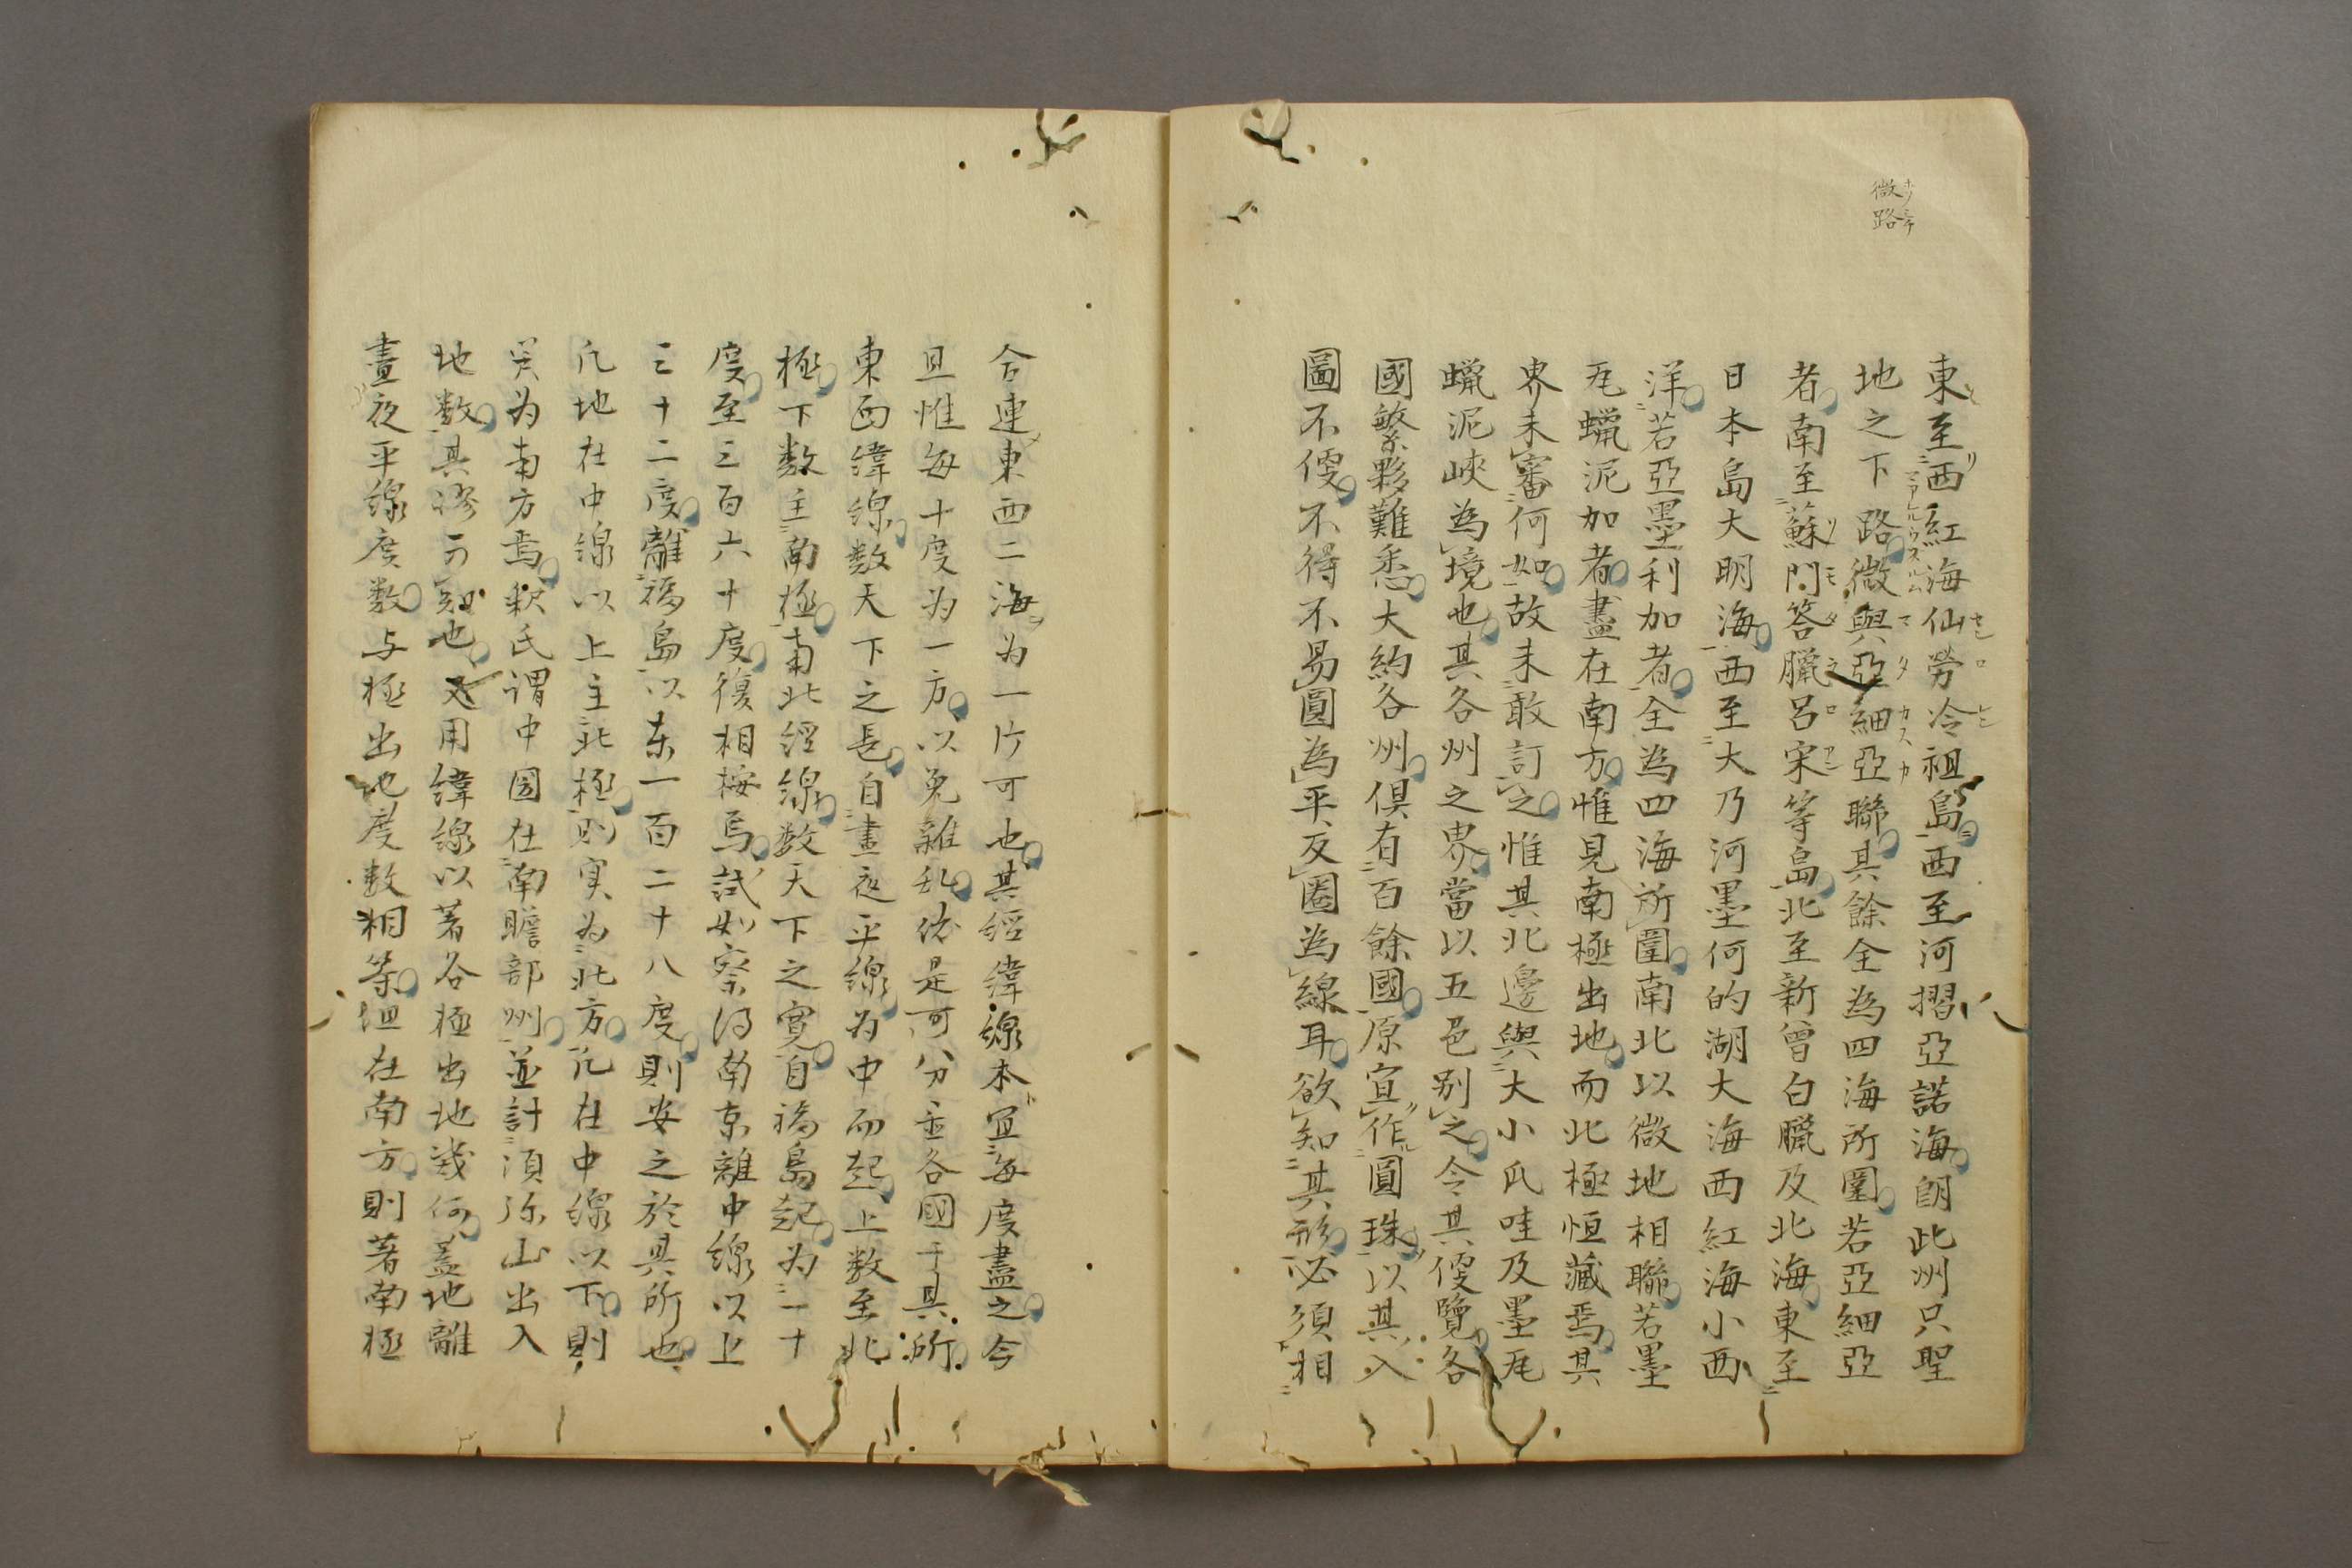 微路
東至西紅海仙勞冷祖島西至河摺亞諾海朗此洲只聖
地之下路微與亞細亞聯其餘全為四海所圍若亞細亞
者南至蘇門答臘呂宋等島北至新曾白臘及北海東至
日本島大明海西至大乃河墨何的湖大海西紅海小西
洋若亞墨利加者全為四海所圍南北以微地相聯若墨
瓦蠟泥加者盡在南方惟見南極出地而北極恒藏焉其
界未審何如故未敢訂之惟其北邊與大小瓜哇及墨瓦
蠟泥峽為境也其各州之界當以五色別之令其便覽各
國繁夥難悉大約各州俱有百餘國原宜作圓珠以其入
圖不便不得不易圓為平反圈為線耳欲知其形必須相
合連東西二海为一片可也其經緯線本宜每度盡之今
且惟每十度为一方以免雜乱依是可分置各國于其所
東西緯線数天下之長自晝夜平線为中而起上数至北
極下数至南極南北經線数天下之寬自福島起为一十
度至三百六十度復相接焉試如察得南京離中線以上
三十二度離福島以東一百二十八度則安之於其所也
凡地在中線以上主北極則実为北方凡在中線以下則
実为南方焉釈氏謂中国在南瞻部州並計須弥山出入
地数其謬可知也又用緯線以著各極出地幾何盖地離
晝夜平線度数与極出地度数相等但在南方則著南極